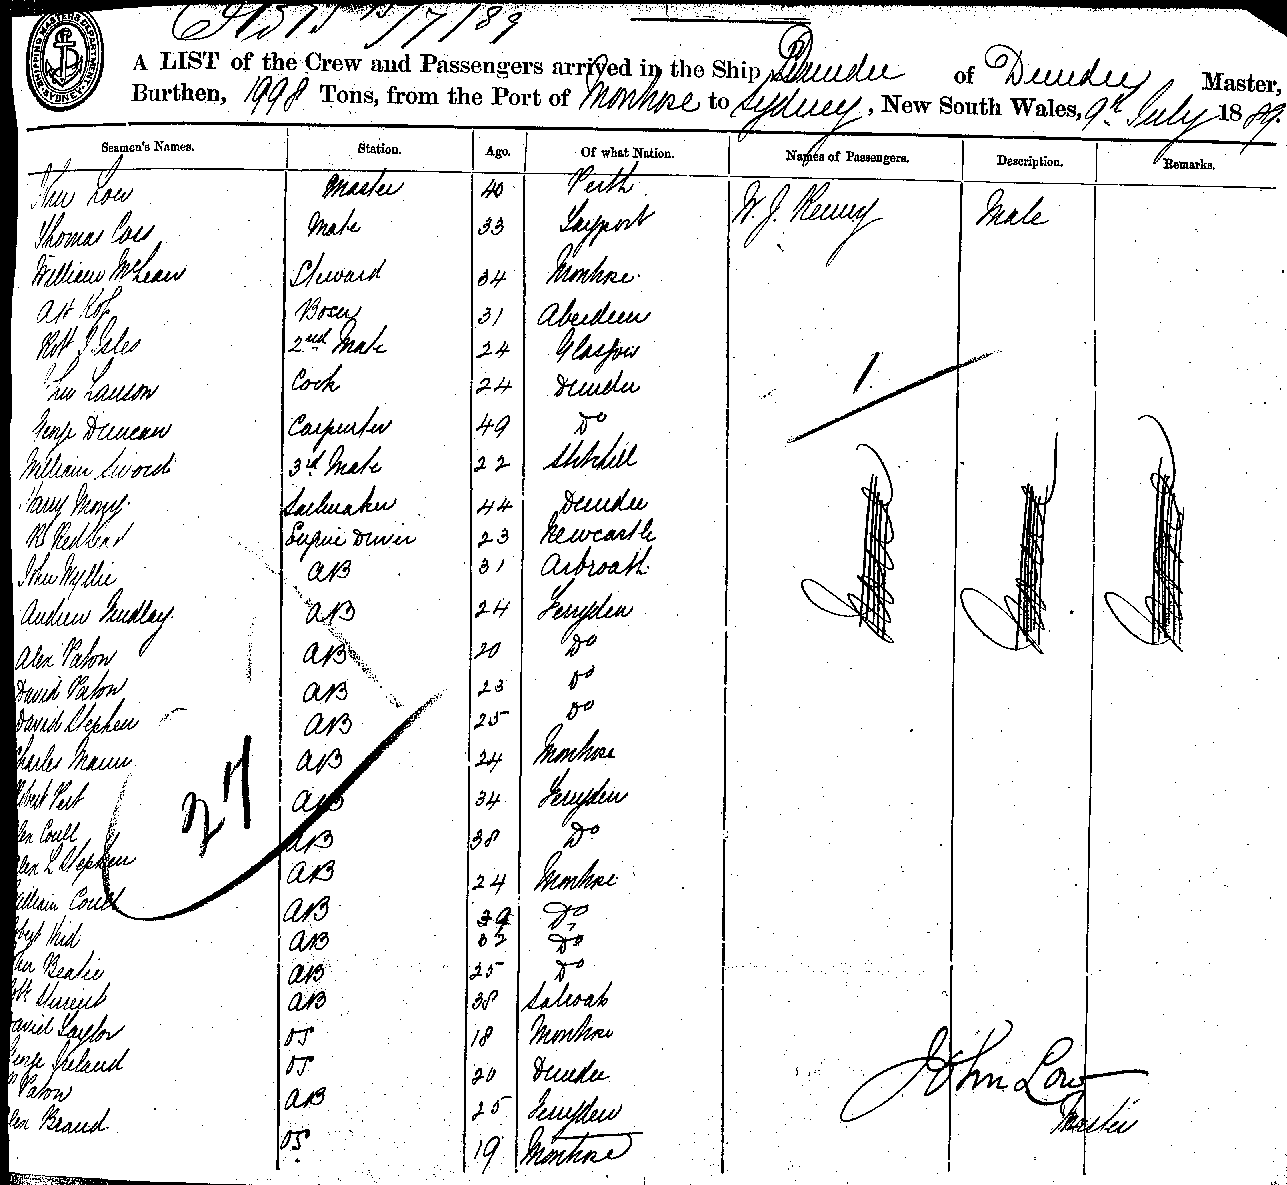 15/7/89
SHIPPING MASTER'S DEPARTMENT SYDNEY
A LIST of the Crew and Passengers arrived in the Ship Dundee of Dundee Master,
Burthen, 1998 Tons, from the Port of Montrose to Sydney, New South Wales, 9th July 1889.
Seamen's Names. Station. Age. Of what Nation. Names of Passengers. Description. Remarks.
John Low Master 40 Perth W. J. Kenny Male
Thomas Cass Mate 33 Tayport
William McLean Steward 34 Montrose
31 Aberdeen
Robt Isles 2nd Mate 24 Glasgow
Lawson Cook 24 Dundee
1
George Duncan Carpenter 49 Do
William Sword 3rd Mate 22 Stitchill
Harry Sailmaker 44 Dundee
Redhead Engine Driver 23 Newcastle
John Wyllie AB 31 Arbroath
Andrew Findlay AB 24 Ferryden
Alex Paton AB 20 Do
David Paton AB 23 Do
David Stephen AB 25 Do
Charles Mann AB 24 Montrose
27
Robert Pert AB 34 Ferryden
Alex Coull AB 38 Do
Alex L Stephen AB 24 Montrose
William Coull AB 39 Do
Robert Reid AB 32 Do
Beatie AB 25 Do
AB 38
David Taylor OS 18 Montrose
George Ireland OS 20 Dundee
Paton AB 25 Ferryden
Alex Brand OS 19 Montrose
John Low
Master